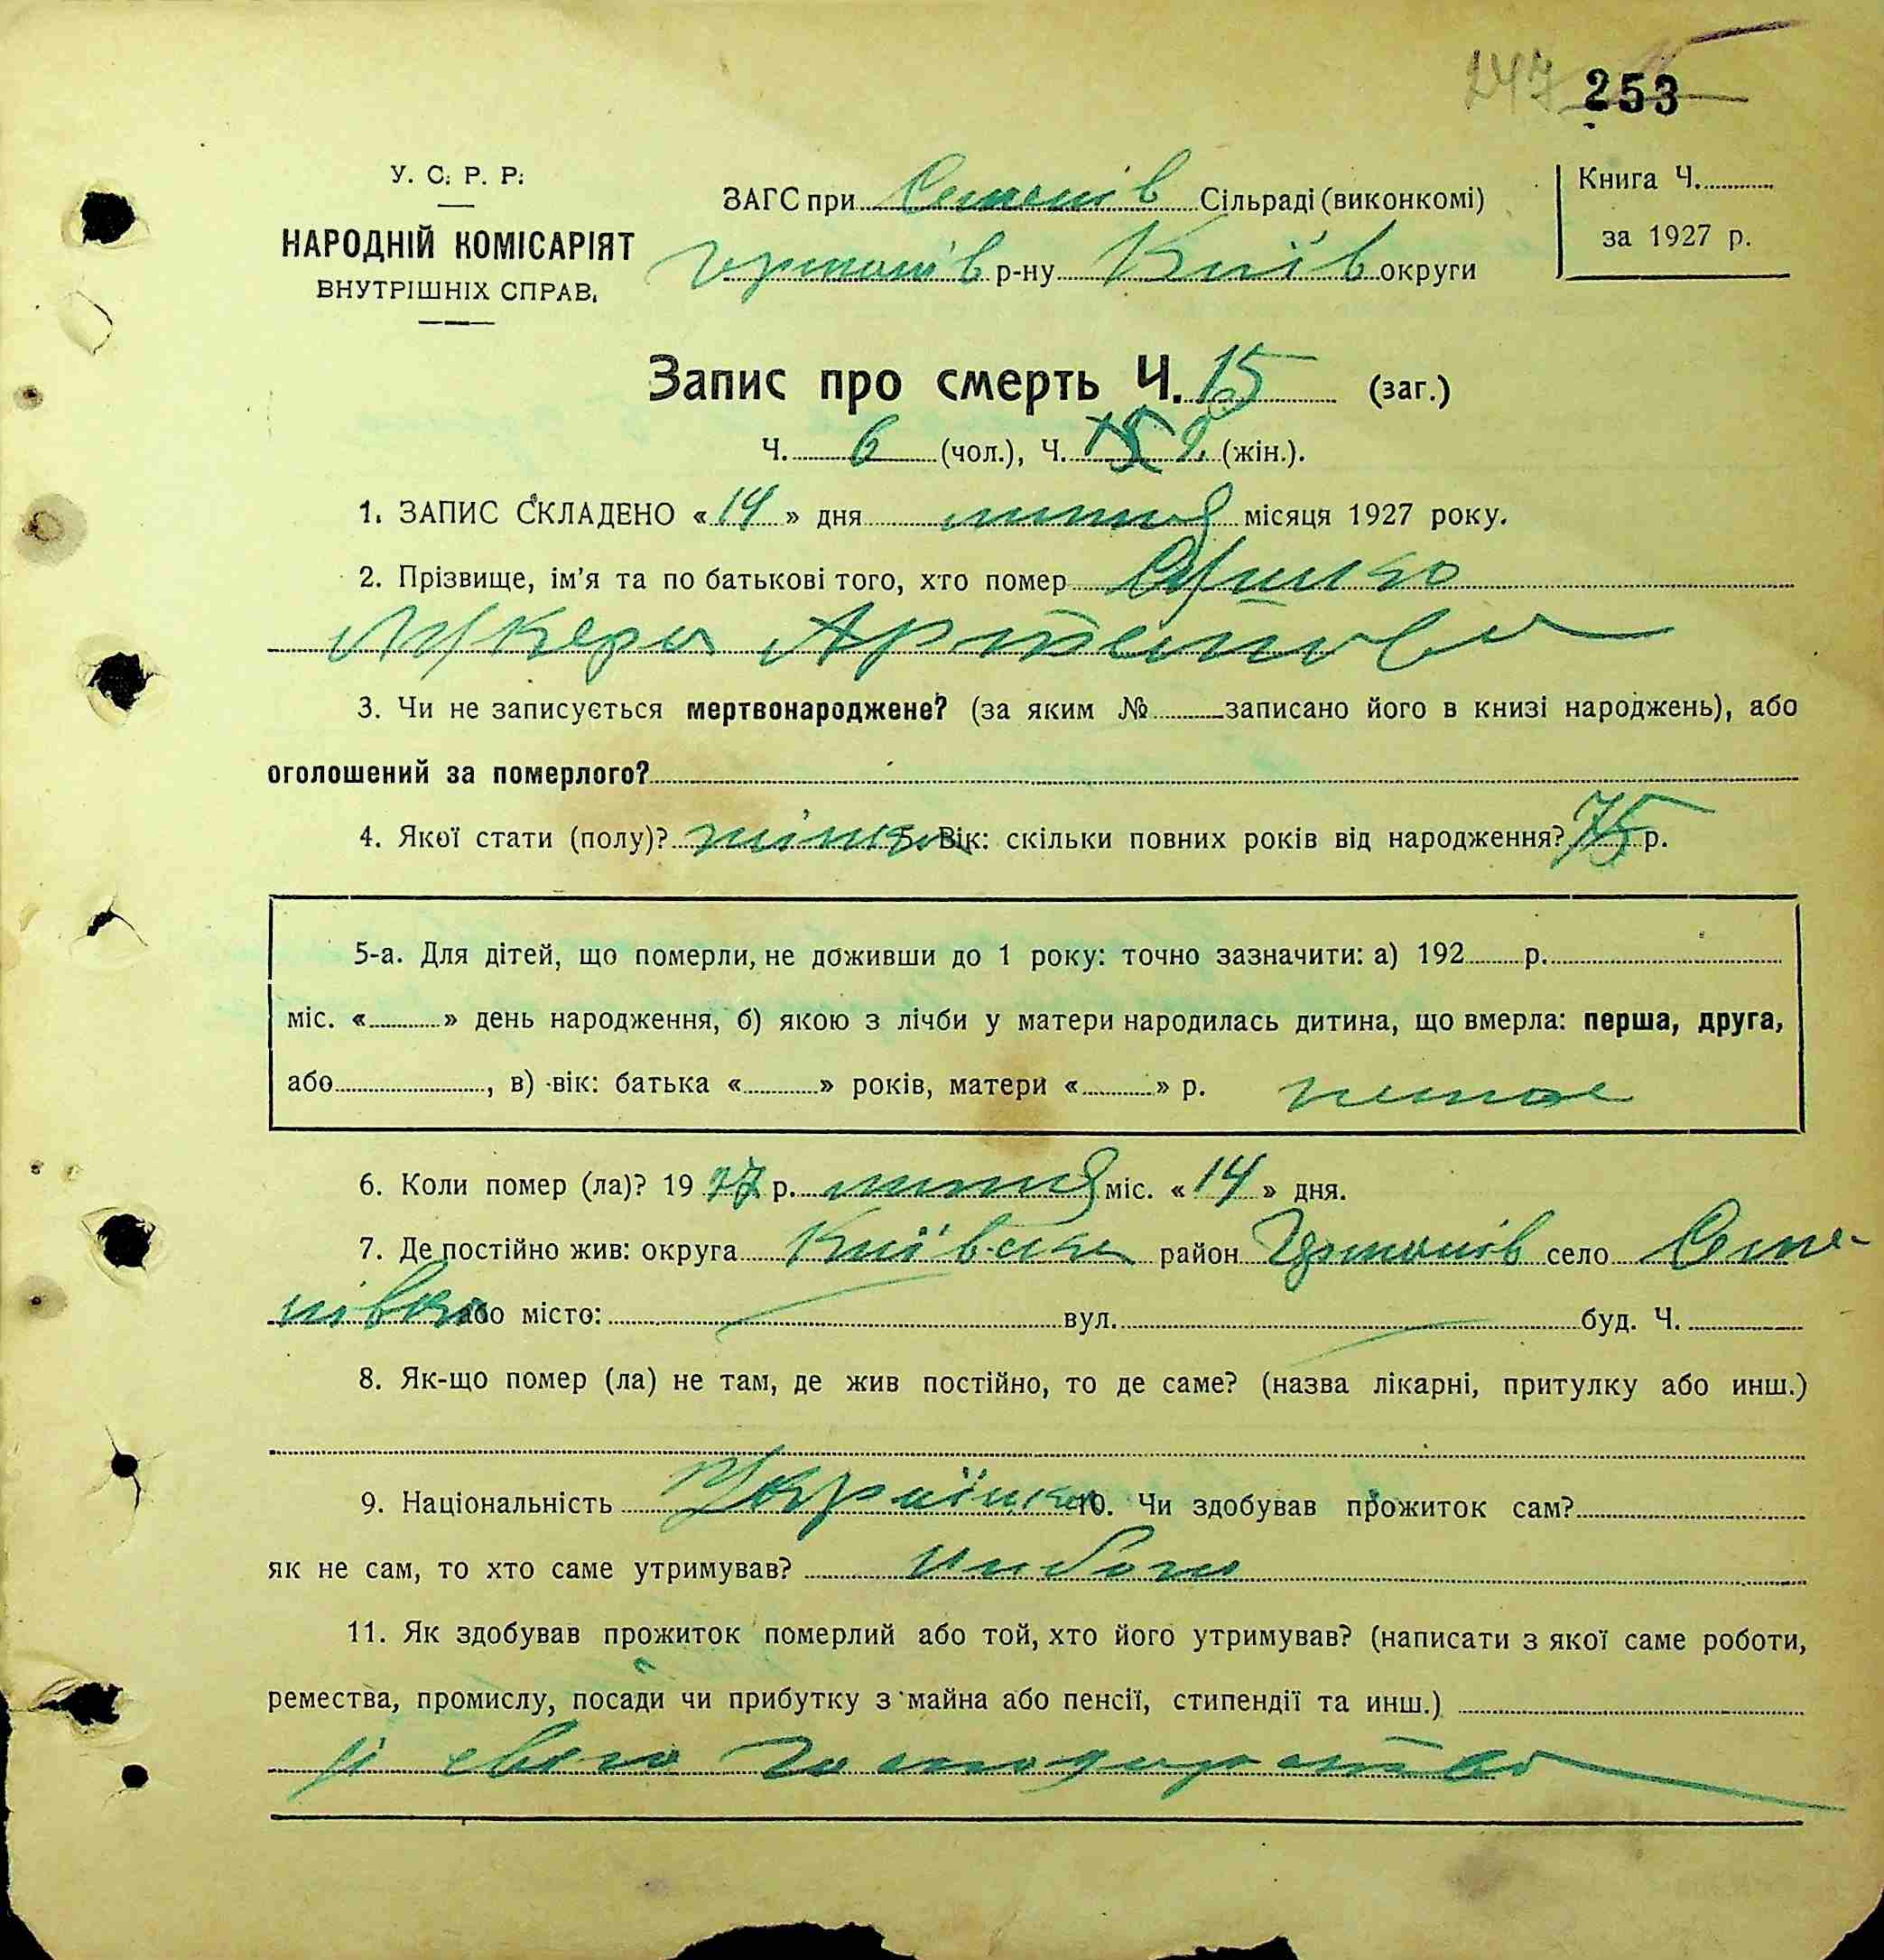 247 253
У. С. Р. Р.
НАРОДНІЙ КОМІСАРІЯТ
ВНУТРІШНІХ СПРАВ.
ЗАГС при Семенів Сільраді (виконкомі)
р-ну Київ округи
Книга Ч.
за 1927 р.
Запис про смерть Ч. 15 (заг.)
Ч. 6 (чол.), Ч. 9 (жін.).
1. ЗАПИС СКЛАДЕНО «14» дня липня місяця 1927 року.
2. Прізвище, ім'я та по батькові того, хто помер
Лукера Артемова
3. Чи не записується мертвонароджене? (за яким № записано його в книзі народжень), або
оголошений за померлого?
4. Якої стати (полу)? жінка 5. Вік: скільки повних років від народження? 75 р.
5-а. Для дітей, що померли, не доживши до 1 року: точно зазначити: а) 192 р.
міс. « » день народження, б) якою з лічби у матери народилась дитина, що вмерла: перша, друга,
або , в) вік: батька « » років, матери « » р. немає
6. Коли помер (ла)? 1927 р. липня міс. «14» дня.
7. Де постійно жив: округа Київська район село Семе-
нівка або місто: вул. буд. Ч.
8. Як-що помер (ла) не там, де жив постійно, то де саме? (назва лікарні, притулку або инш.)
9. Національність Українка 10. Чи здобував прожиток сам?
як не сам, то хто саме утримував?
11. Як здобував прожиток померлий або той, хто його утримував? (написати з якої саме роботи,
ремества, промислу, посади чи прибутку з майна або пенсії, стипендії та инш.)
зі свого господарства